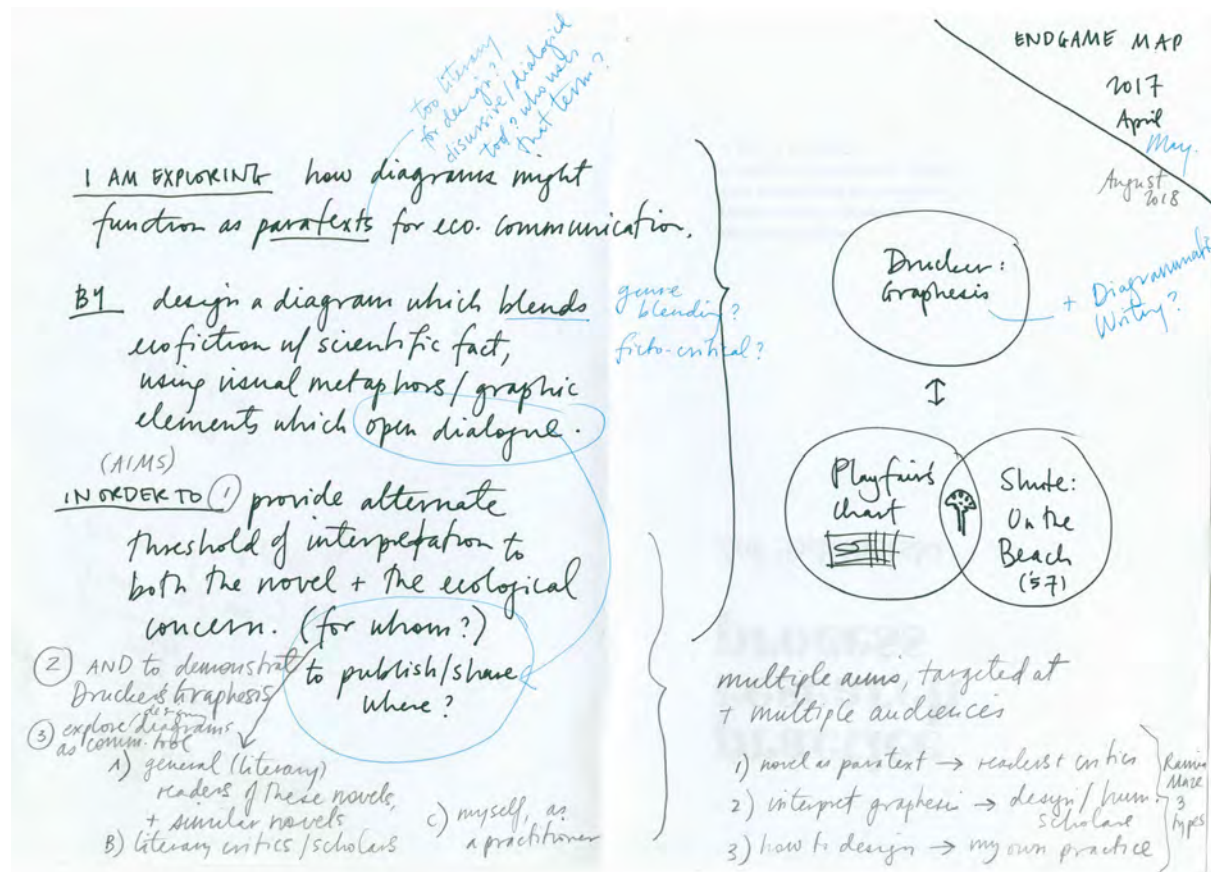 ENDGAME MAP
2017
April
May.
August
2018
too literary
for design?
discursive/dialogical
tool? who uses
that term?
I AM EXPLORING how diagrams might
function as paratexts for eco. communication.
BY design a diagram which blends
ecofiction w/ scientific fact,
using visual metaphors/graphic
elements which open dialogue.
genre
blending?
ficto-critical?
(AIMS)
IN ORDER TO 1 provide alternate
threshold of interpretation to
both the novel + the ecological
concern. (for whom?)
to publish/share
where?
2 AND to demonstrate
Drucker's Graphesis
3 explore design diagrams
as comm. tool
A) general (literary)
readers of these novels,
+ similar novels
B) literary critics/scholars
C) myself, as
a practitioner
Drucker:
Graphesis
+ Diagrammatic
Writing?
Playfair's
chart
Shute:
On the
Beach
('57)
multiple aims, targeted at
+ multiple audiences
1) novel as paratext → readers + critics
2) interpret graphesis → design/hum.
scholars
3) how to design → my own practice
Ramia
Maze
3
types